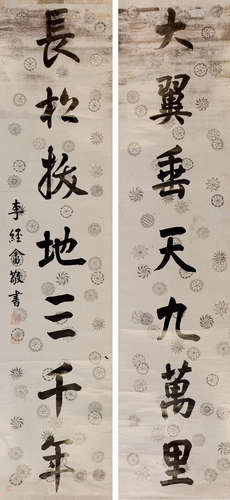 大翼垂天九萬里
長松拔地三千年
李經畬敬書